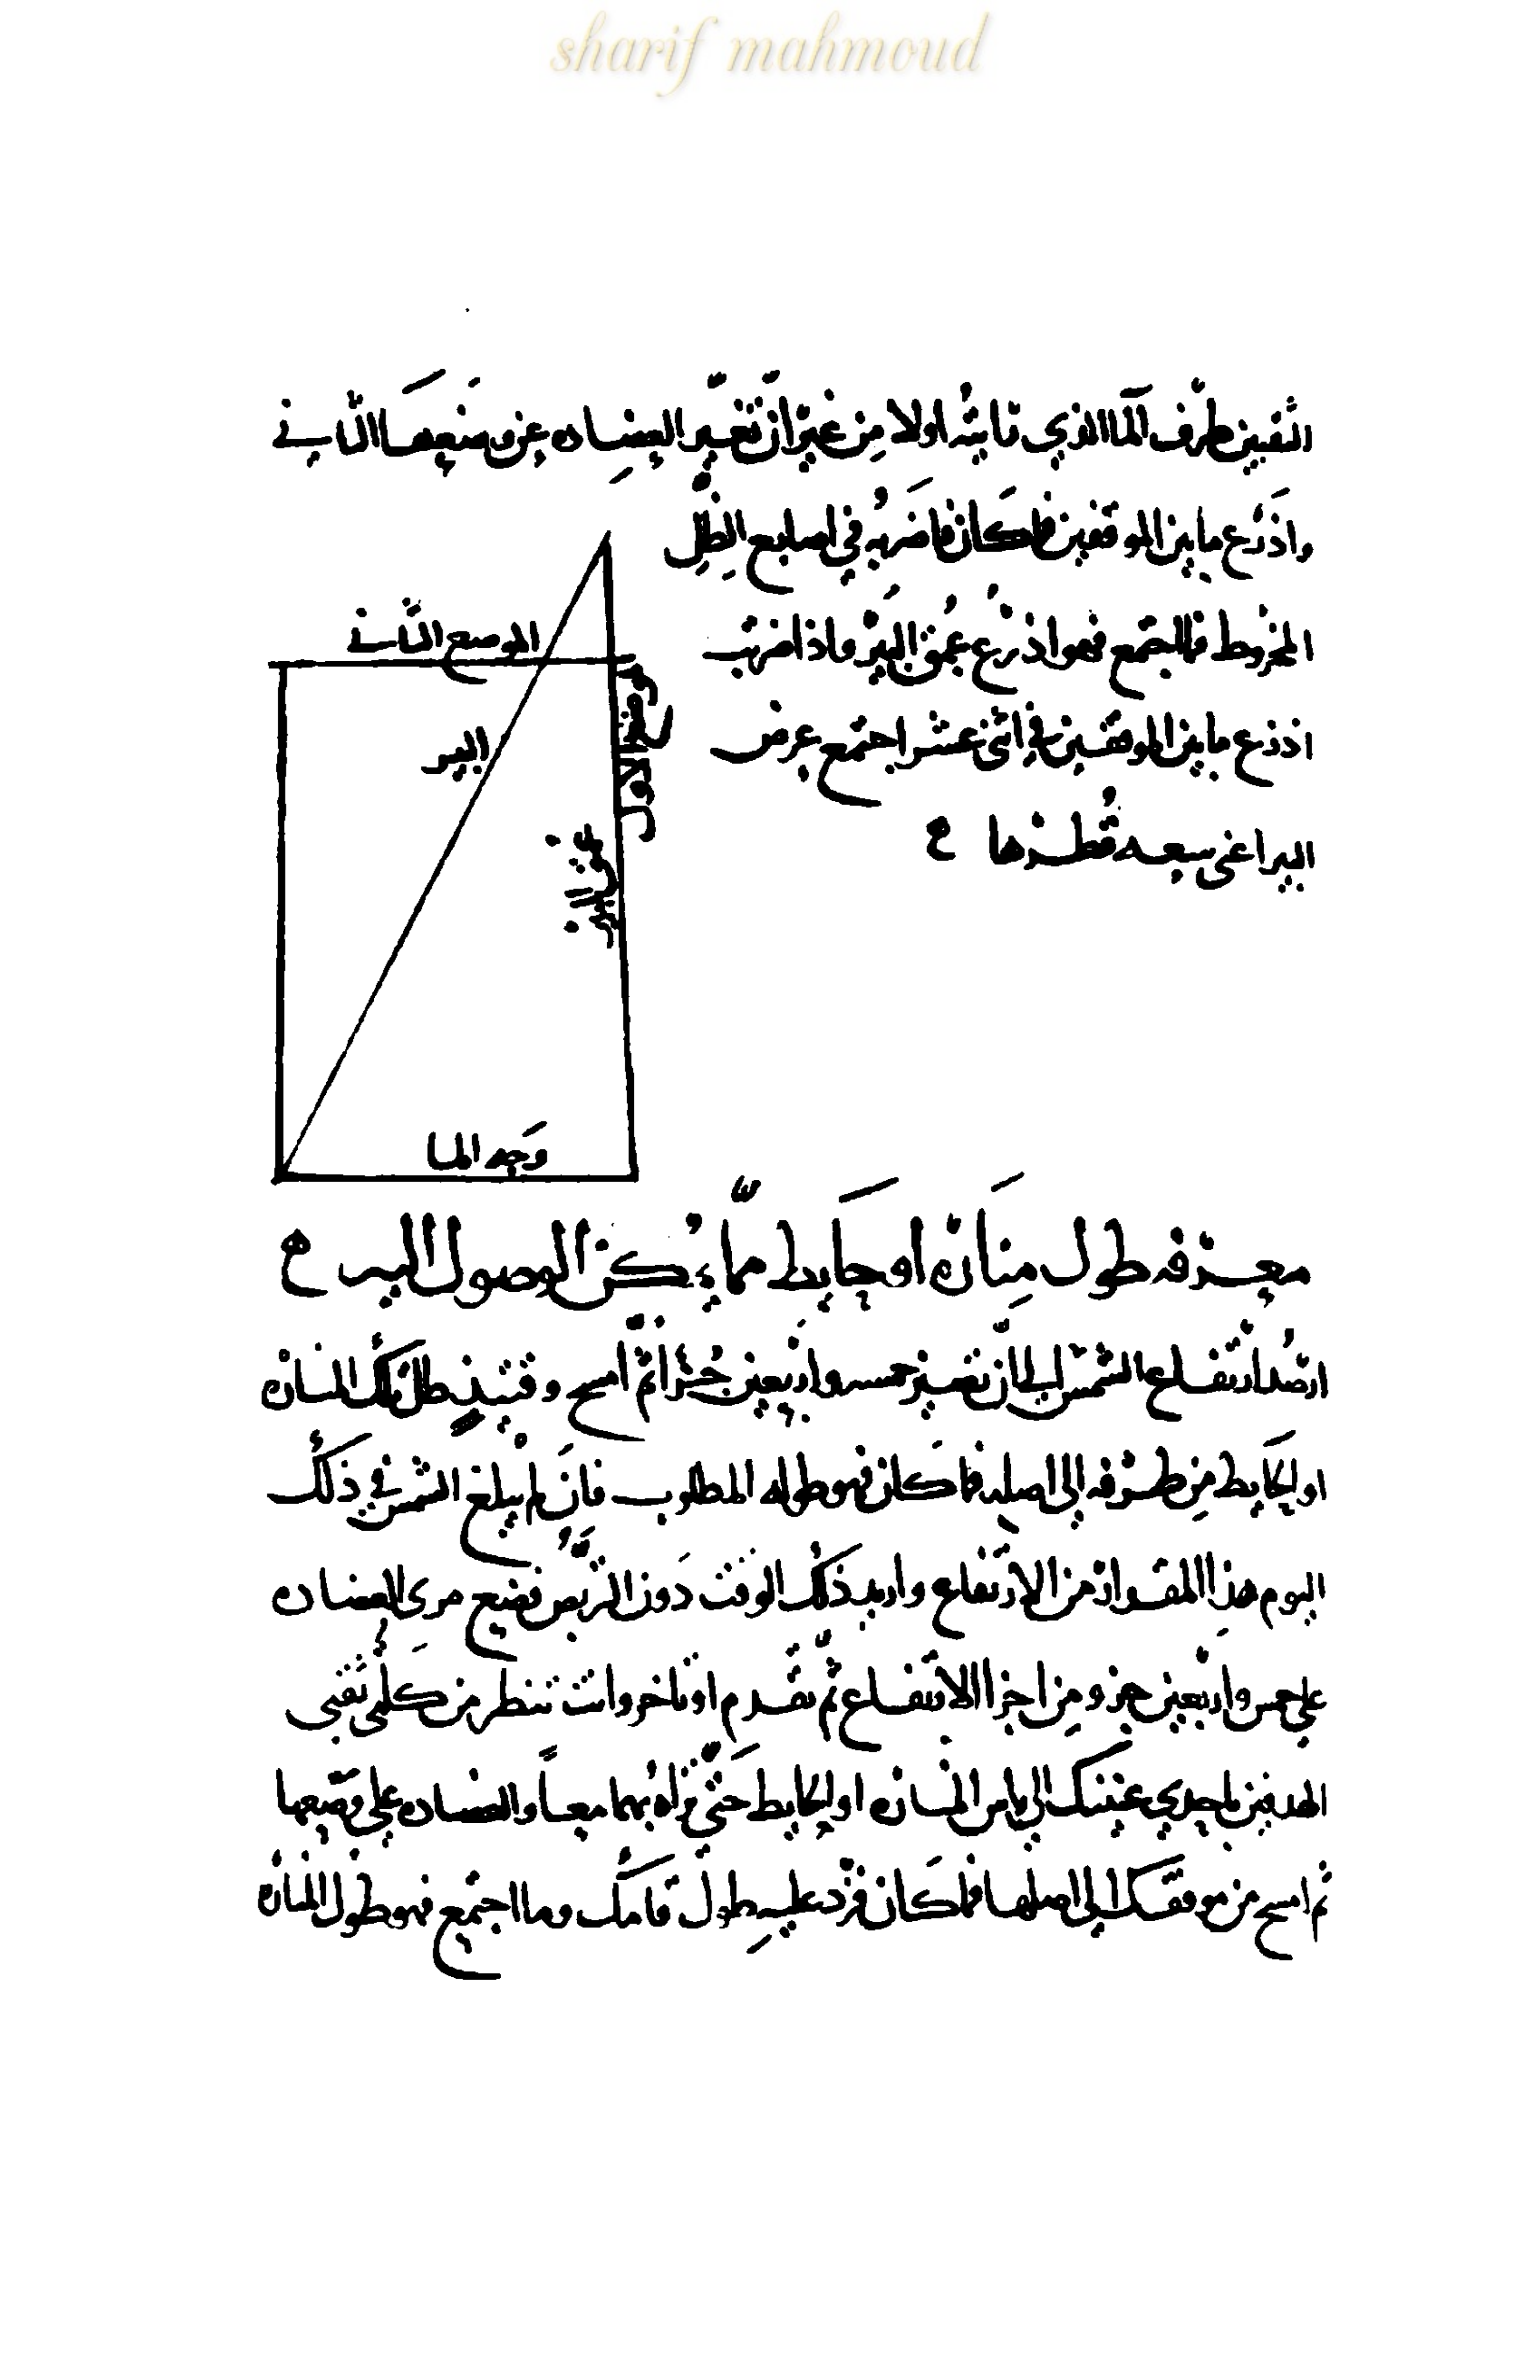 sharif mahmoud
الثقبين طرف الما الذي رايته اولا من غير ان تغير العضاده عن وضعها الثاني
واذرع ما بين الموقفين فما كان فاضربه في اصابع الظل
الموضع الثاني
المخروط فما اجتمع فهو اذرع عمق البير واذا ضربت
موضع الاول
البير
اذرع ما بين الموقفين في اثنى عشر اجتمع عرض
البير اعنى سعه قطرها
عمق البير
وجه الما
معرفه طول مناره او حايط مما يمكن الوصول اليه
ارصد ارتفاع الشمس الى ان تصير خمسه واربعين جزءا ثم امسح وقتيذ ظل تلك المناره
او الحايط من طرفه الى اصله فما كان فهو طوله المطلوب فان لم يبلغ الشمس في ذلك
اليوم هذا المقدار من الارتفاع واريد ذلك الوقت دون التربص فضع مرى العضاده
على خمس واربعين جزو من اجزا الارتفاع ثم تقدم او تاخر وانت تنظر من كلى ثقبي
الهدفين باحدي عينيك الى راس المناره او الحايط حتى تراه بهما معا والعضاده على وضعها
ثم امسح من موقفك الى اصلها فما كان فزد عليه طول قامتك وما اجتمع فهو طول المناره